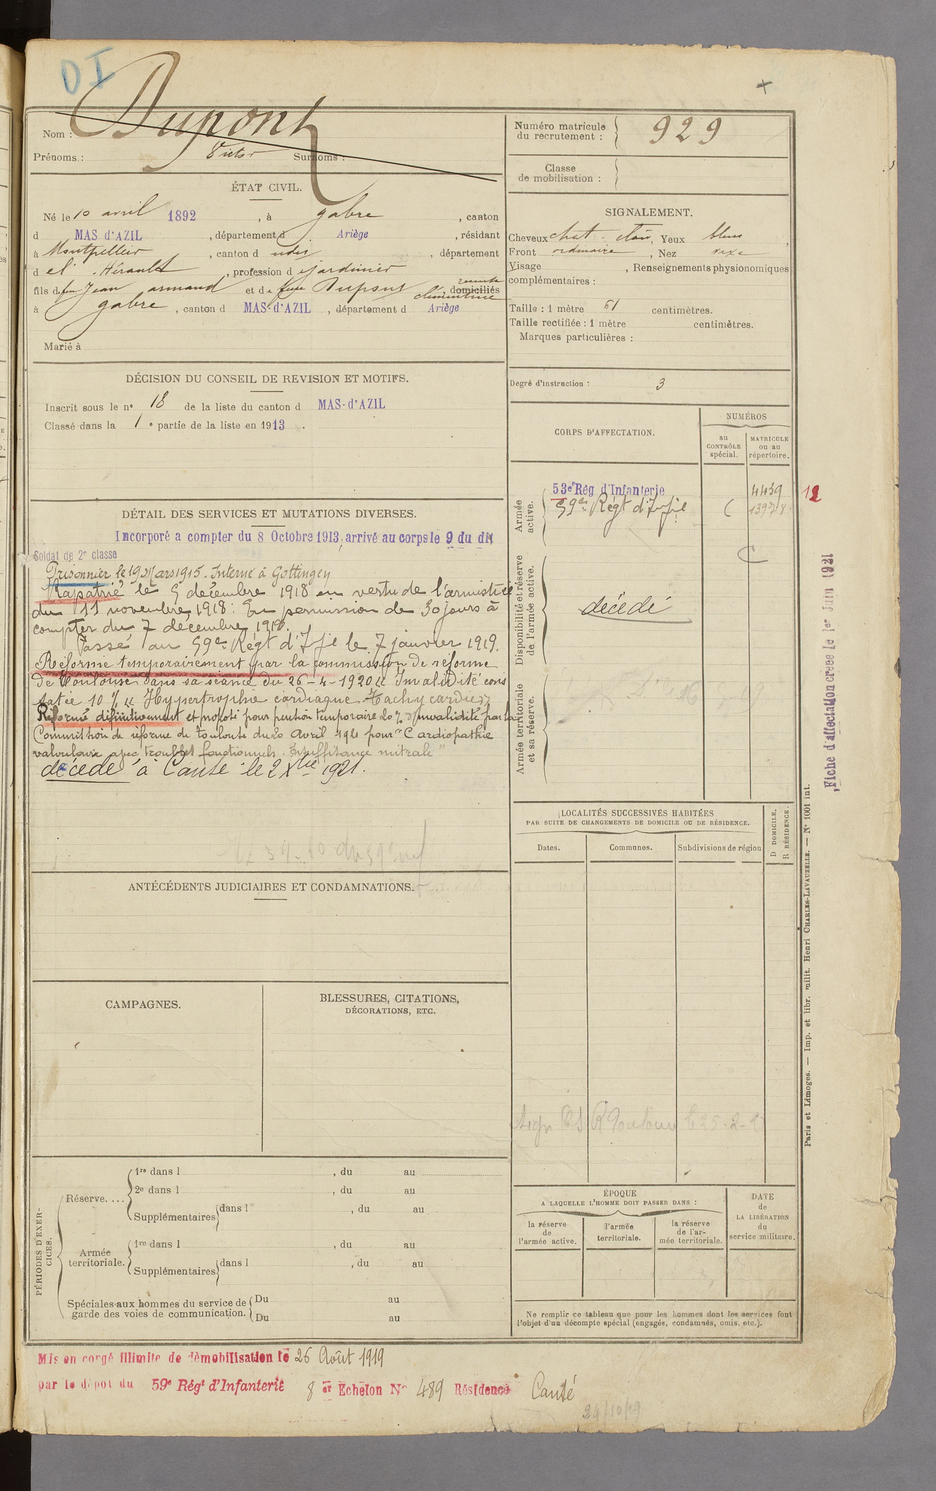 DI
Nom : Dupont
Prénoms : Victor Surnoms :
ÉTAT CIVIL.
Né le 10 avril 1892, à gabre, canton
d MAS d'AZIL, département d Ariège, résidant
à Montpellier, canton d udit, département
d el Hérault, profession d ejardinier
fils d feu Jean armand et d e feue Dupont clémentine domiciliés
à gabre, canton d MAS-d'AZIL, département d Ariège
Marié à
DÉCISION DU CONSEIL DE REVISION ET MOTIFS.
Inscrit sous le n° 18 de la liste du canton d MAS-d'AZIL
Classé dans la 1e partie de la liste en 1913.
DÉTAIL DES SERVICES ET MUTATIONS DIVERSES.
Incorporé a compter du 8 Octobre 1913, arrivé au corps le 9 du dit
Soldat de 2e classe
Prisonnier le 19 Mars 1915. Interné à Gottingen
Rapatrié le 9 décembre 1918 en vertu de l'armistice
du 11 novembre 1918 : En permission de 30 jours à
compter du 7 décembre 1918.
Passé au 59e Régt d'Ifie le 7 janvier 1919.
Réformé temporairement par la commission de réforme
de Pontoise dans sa séance du 26-4-1920 Invalidité cons
tatée 10 % "Hypertrophie cardiaque. Tachycardie"
Réformé définitivement et proposé pour pension temporaire 20 % d'invalidité par la
Commission de réforme de toulouse du 20 Avril 1921 pour "Cardiopathie
valvulaire avec troubles fonctionnels. Insuffisance mitrale"
décédé à Canté le 2 Xbre 1921.
ANTÉCÉDENTS JUDICIAIRES ET CONDAMNATIONS.
CAMPAGNES.
BLESSURES, CITATIONS,
DÉCORATIONS, ETC.
PÉRIODES D'EXERCICES.
Réserve....
1re dans l , du au
2e dans l , du au
Supplémentaires dans l , du au
Armée territoriale.
1re dans l , du au
Supplémentaires dans l , du au
Spéciales aux hommes du service de garde des voies de communication.
Du au
Du au
Mis en congé illimité de démobilisation le 26 Août 1919
par le dépôt du 59e Régt d'Infanterie 8 er Echelon N° 489 Résidence Canté
24/10/19
Numéro matricule
du recrutement : 929
Classe
de mobilisation :
SIGNALEMENT.
Cheveux chat. clair, Yeux bleus
Front ordinaire, Nez
Visage , Renseignements physionomiques
complémentaires :
Taille : 1 mètre 61 centimètres.
Taille rectifiée : 1 mètre centimètres.
Marques particulières :
Degré d'instruction : 3
CORPS D'AFFECTATION.
NUMÉROS
au
CONTRÔLE
spécial.
MATRICULE
ou au
répertoire.
Armée
active.
53e Rég d'Infanterie 4439 12
59e Régt d'Ifie
Disponibilité et réserve
de l'armée active.
décédé
Armée territoriale
et sa réserve.
LOCALITÉS SUCCESSIVES HABITÉES
PAR SUITE DE CHANGEMENTS DE DOMICILE OU DE RÉSIDENCE.
D DOMICILE.
R RÉSIDENCE.
Dates. Communes. Subdivisions de région
ÉPOQUE
A LAQUELLE L'HOMME DOIT PASSER DANS :
la réserve
de
l'armée active.
l'armée
territoriale.
la réserve
de l'ar-
mée territoriale.
DATE
de
LA LIBÉRATION
du
service militaire.
Ne remplir ce tableau que pour les hommes dont les services font
l'objet d'un décompte spécial (engagés, condamnés, omis, etc.).
Fiche d'affectation créée le 1er Juin 1921
Paris et Limoges. — Imp. et libr. milit. Henri CHARLES-LAVAUZELLE. — N° 1001 int.